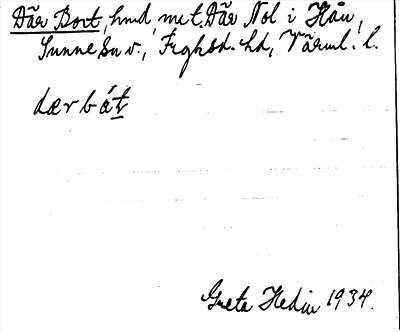 Där Bort, hmd mot. Där Nol i Hån,
Sunne sn v., Frykds. hd, Värml. l.
dærbát
Greta Hedin 1934.